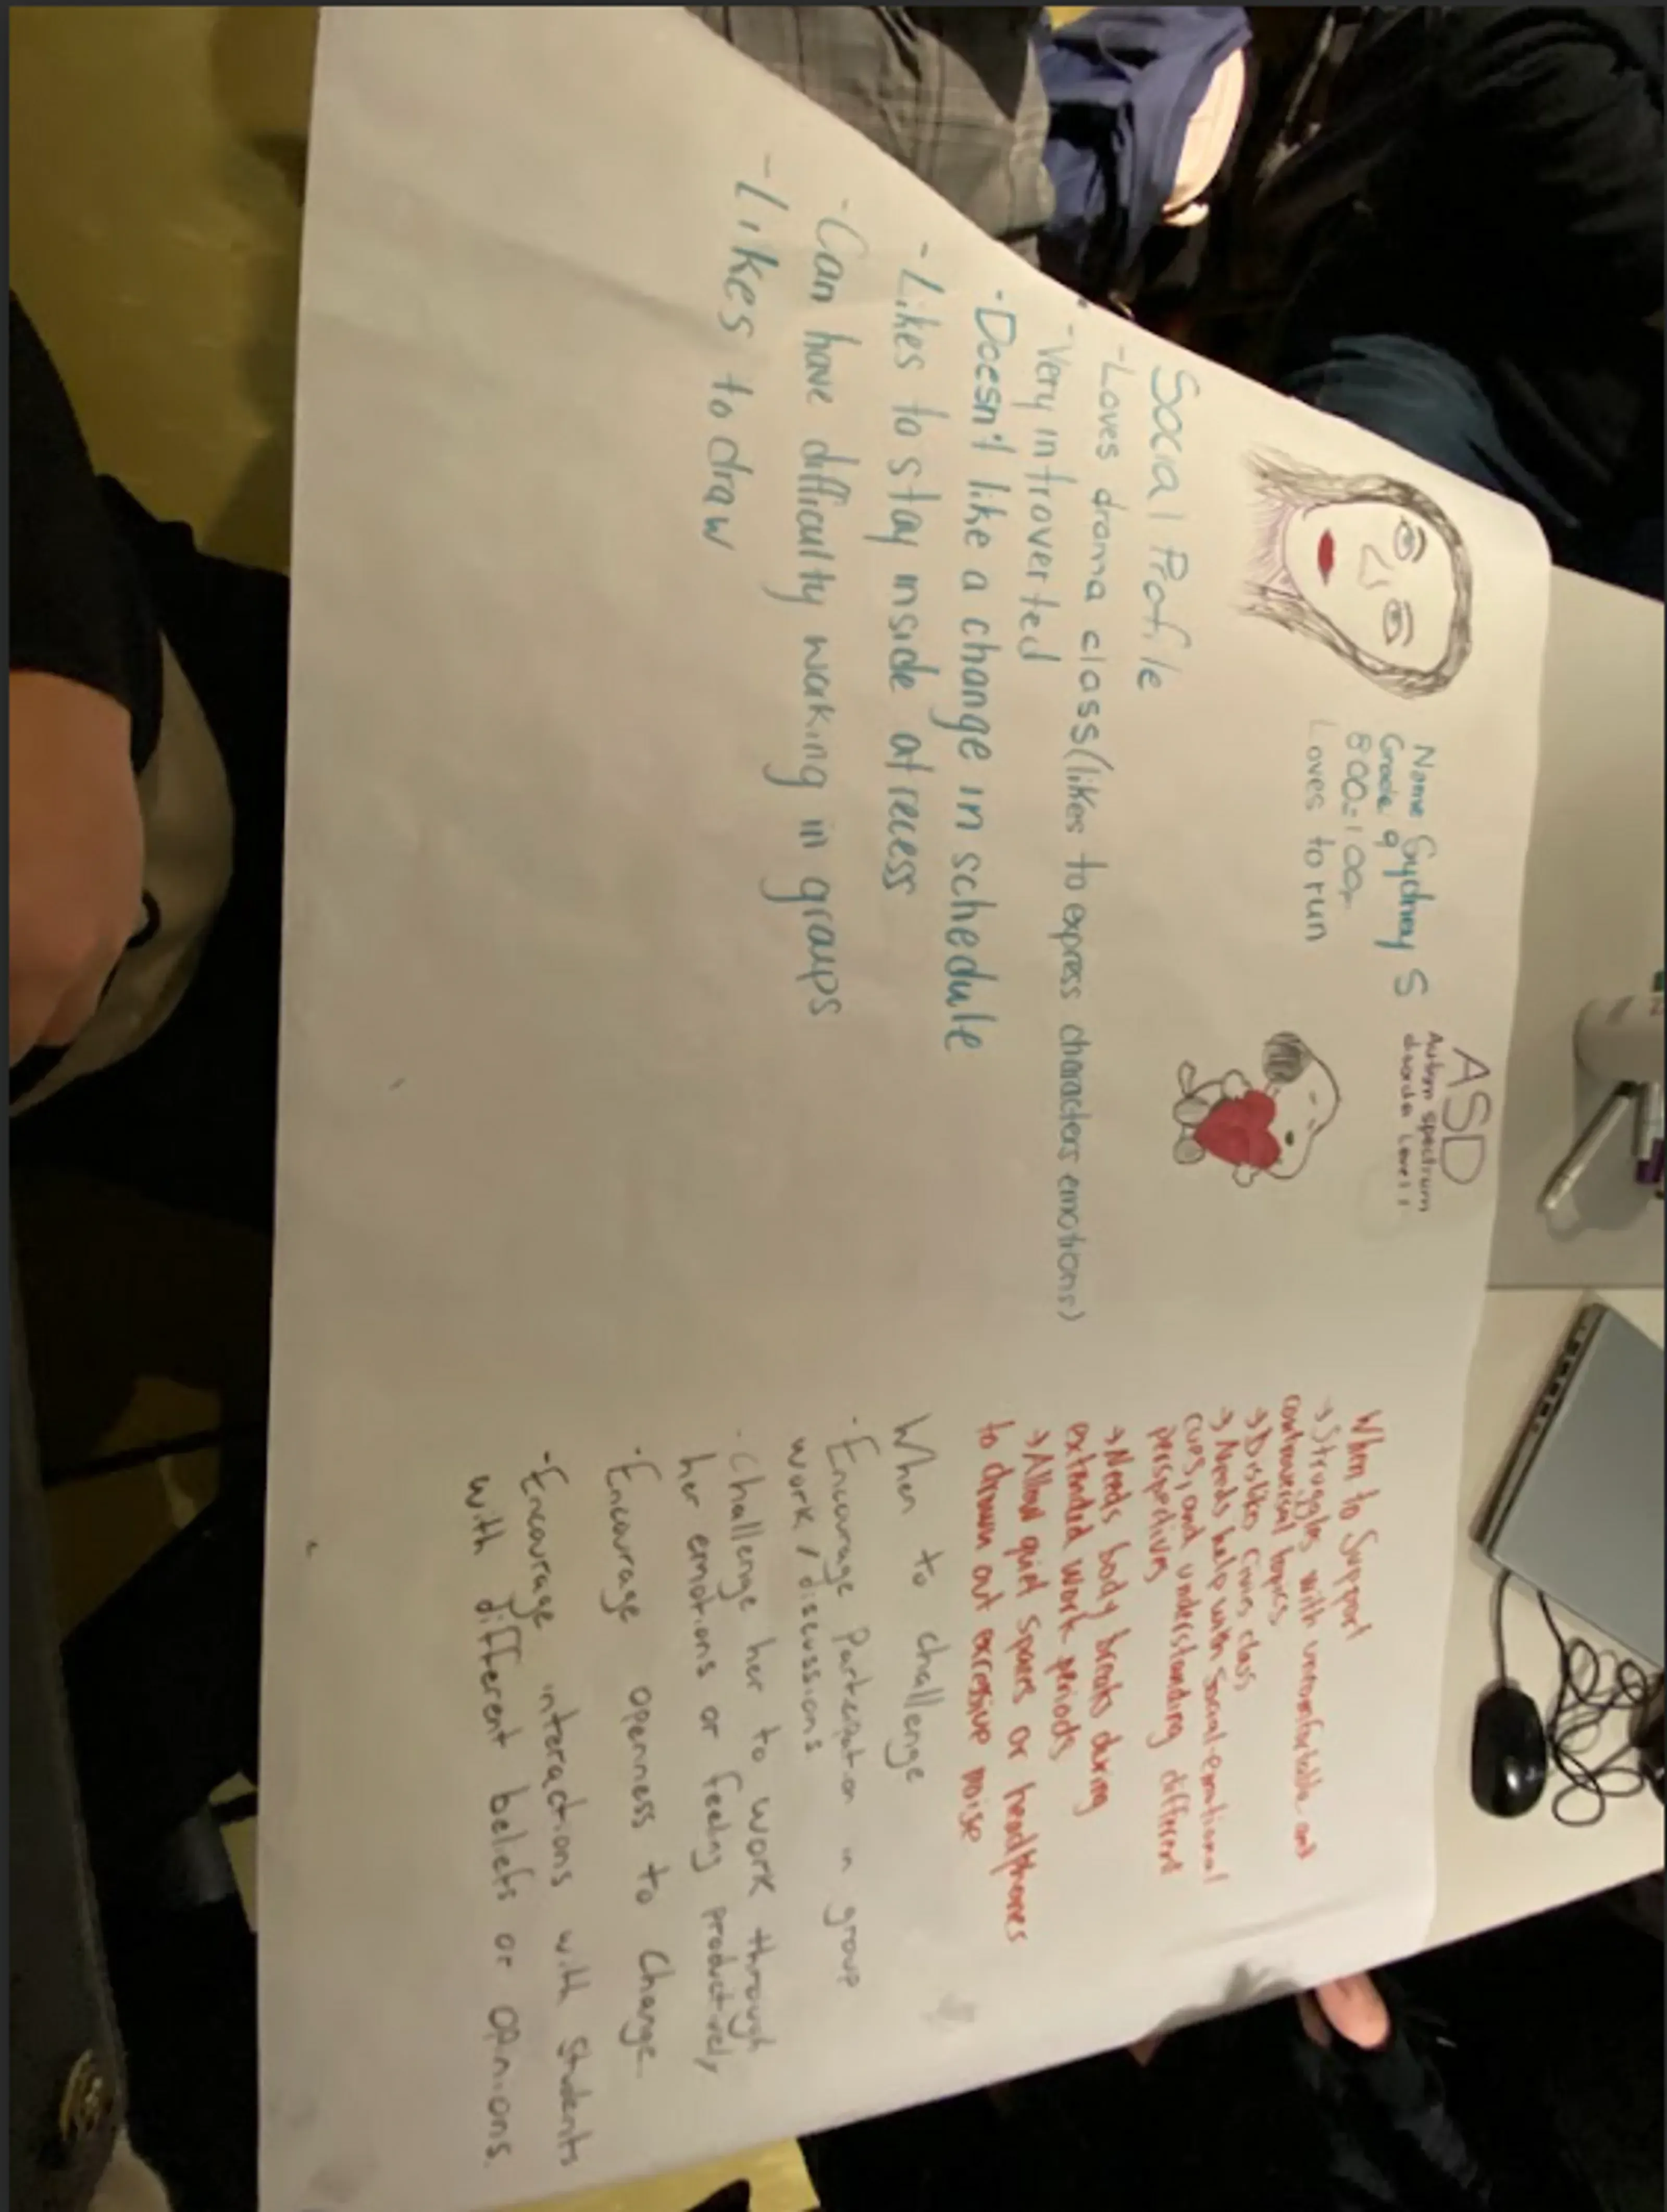 ASD
Autism spectrum
disorder Level 1
Name Sydney S
Grade 9
Loves to run
Social Profile
-Loves drama class (likes to express characters emotions)
-Very introverted
-Doesn't like a change in schedule
-Likes to stay inside at recess
-Can have difficulty working in groups
-Likes to draw
When to Support
→ Struggles with uncomfortable and
controversial topics
→ Dislikes Civics class
→ Needs help with Social-emotional
cues, and understanding different
perspectives
→ Needs body breaks during
extended work periods
→ Allow quiet spaces or headphones
to drown out excessive noise
When to challenge
-Encourage Participation in group
work / discussions
-Challenge her to work through
her emotions or feelings productively
-Encourage openness to Change
-Encourage interactions with students
with different beliefs or opinions.